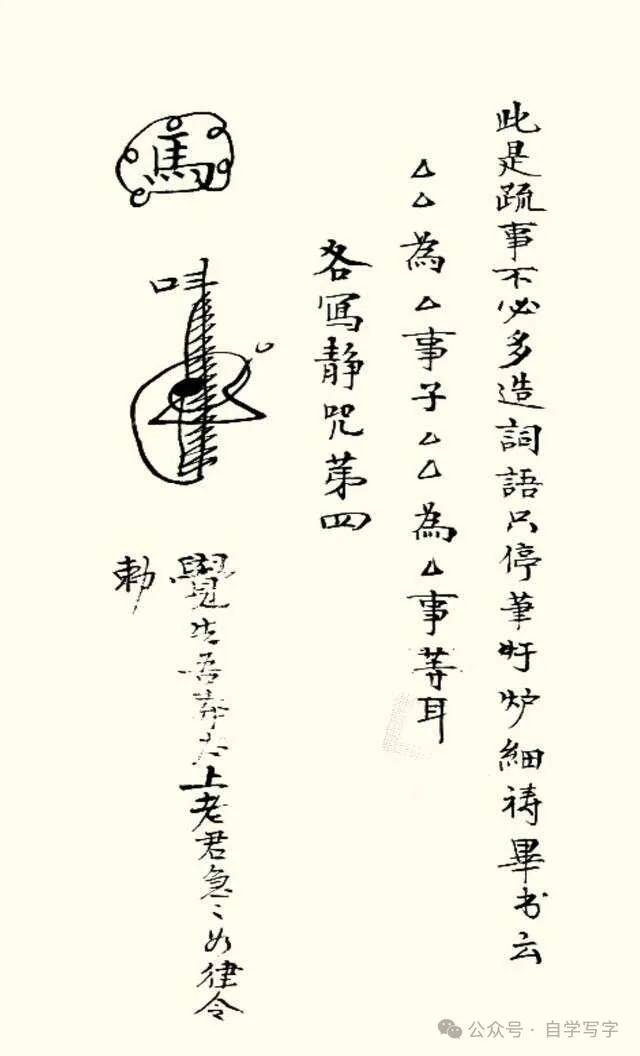 此是疏事不必多造詞語只停筆对炉細祷畢书云
△△為△事子△△為△事等耳
各写静咒第四
馬
覺吾奉太上老君急〻如律令
勅
公众号·自学写字